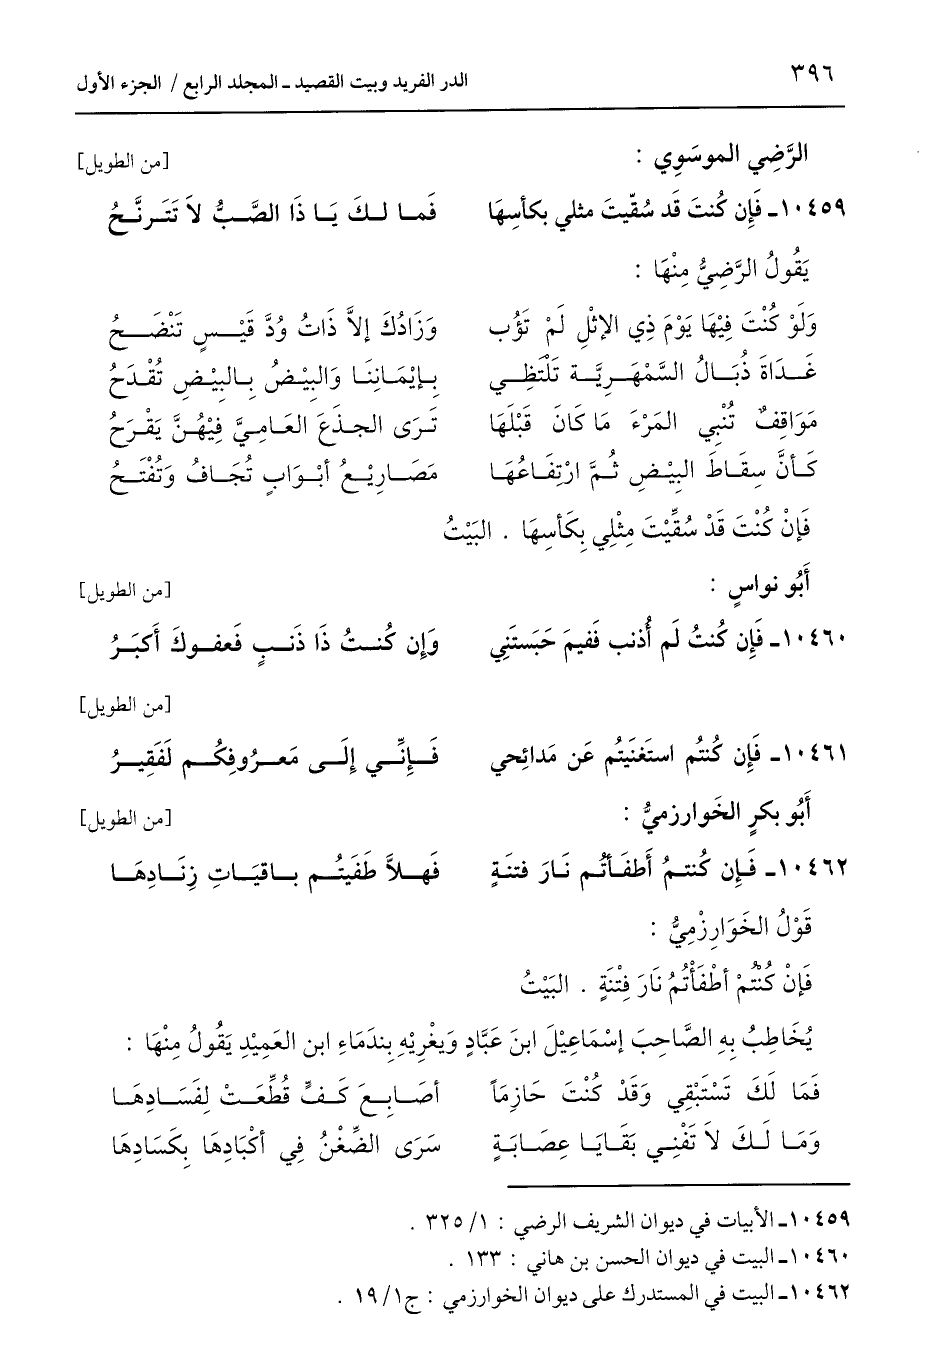 ٣٩٦ الدر الفريد وبيت القصيد ـ المجلد الرابع / الجزء الأول
الرَّضِي الموسَوِي : [من الطويل]
١٠٤٥٩ـ فَإِن كُنتَ قَد سُقِّيتَ مثلي بكأسِهَا فَما لـكَ يَـا ذَا الصَّـبُّ لاَ تَتَـرنَّـحُ
يَقُولُ الرَّضِيُّ مِنْهَا :
وَلَوْ كُنْتَ فِيْهَا يَوْمَ ذِي الإثْلِ لَمْ تَؤُب وَزَادُكَ إلاَّ ذَاتُ وُدَّ قَيْـسٍ تَنْضَـحُ
غَـدَاةَ ذُبَـالُ السَّمْهَـرِيَّـةِ تَلْتَظِـي بِـإيْمَـانِنَـا وَالبِيْـضُ بِـالبِيْـضِ تُقْـدَحُ
مَوَاقِفٌ تُنْبِي المَرْءَ مَا كَانَ قَبْلَهَا تَـرَى الجـذَعَ العَـامِيَّ فِيْهُـنَّ يَقْـرَحُ
كَـأَنَّ سِقَـاطَ البِيْـضِ ثُـمَّ ارْتِفَـاعُهَـا مَصَـارِيْـعُ أبْـوَابٍ تُجَـافُ وَتُفْتَـحُ
فَإنْ كُنْتَ قَدْ سُقِّيْتَ مِثْلِي بِكَأسِهَا . البَيْتُ
أَبُو نواسٍ : [من الطويل]
١٠٤٦٠ـ فَإِن كُنتُ لَم أُذنب فَفيمَ حَبَستَنِي وَإِن كُنـتُ ذَا ذَنـبٍ فَعفـوكَ أَكبَـرُ
[من الطويل]
١٠٤٦١ـ فَإِن كُنتُم استَغنَيتُم عَن مَدائِحي فَـإِنِّـي إِلَـى مَعـرُوفِكُـم لَفَقِيـرُ
أَبُو بكرٍ الخَوارزميُّ : [من الطويل]
١٠٤٦٢ـ فَـإِن كُنتـمُ أَطفَـأتُم نَـارَ فتنَةٍ فَهـلاَّ طَفَيتُـم بـاقيَـاتِ زِنَـادِهَـا
قَوْلُ الخَوَارِزْمِيُّ :
فَإنْ كُنْتُمْ أطْفَأتُمْ نَارَ فِتْنَةٍ . البَيْتُ
يُخَاطِبُ بِهِ الصَّاحِبَ إسْمَاعِيْلَ ابنَ عَبَّادٍ وَيغْرِيْهِ بِنَدَمَاءِ ابن العَمِيْدِ يَقُولُ مِنْهَا :
فَمَا لَكَ تَسْتَبْقِي وَقَدْ كُنْتَ حَازِمَاً أصَـابِـعَ كَـفٍّ قُطِّعَـتْ لِفَسَـادِهَـا
وَمَـا لَـكَ لاَ تَفْنِـي بَقَـايَـا عِصَـابَةٍ سَرَى الضِّغْنُ فِي أكْبَادِهَا بِكَسَادِهَا
١٠٤٥٩ـ الأبيات في ديوان الشريف الرضي : ١/ ٣٢٥ .
١٠٤٦٠ـ البيت في ديوان الحسن بن هاني : ١٣٣ .
١٠٤٦٢ـ البيت في المستدرك على ديوان الخوارزمي : ج١/ ١٩ .